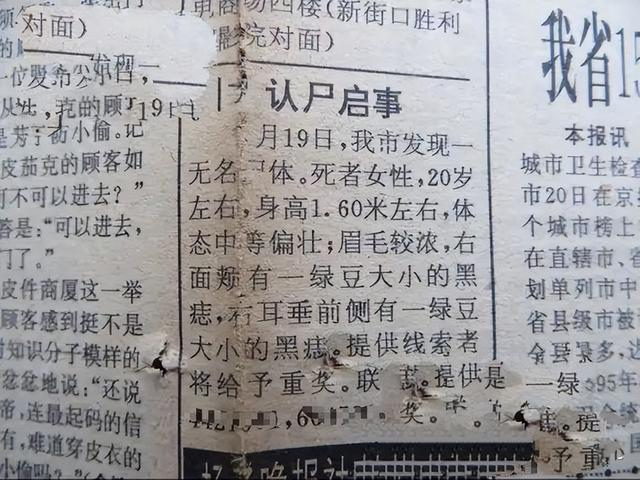 电商场四楼(新街口胜利
影院对面)
对面)
认尸启事
月19日,我市发现一
无名 体。死者女性,20岁
左右,身高1.60米左右,体
态中等偏壮;眉毛较浓,右
面颊有一绿豆大小的黑
痣,右耳垂前侧有一绿豆
大小的黑痣。提供线索者
将给予重奖。联 提供是
奖。
是芳 衡小偷。记
皮茄克的顾客如
可不可以进去?”
答是:“可以进去,
门了。”
皮件商厦这一举
顾客感到挺不是
对知识分子模样的
忿忿地说:“还说
帝,连最起码的信
有,难道穿皮衣的
小偷吗?”
我省15
本报讯
城市卫生检查
市20日在京
个城市榜上
在直辖市、省
划单列市中
省县级市被
会县最多,达
一绿 95年
提
予重
扬子晚报社